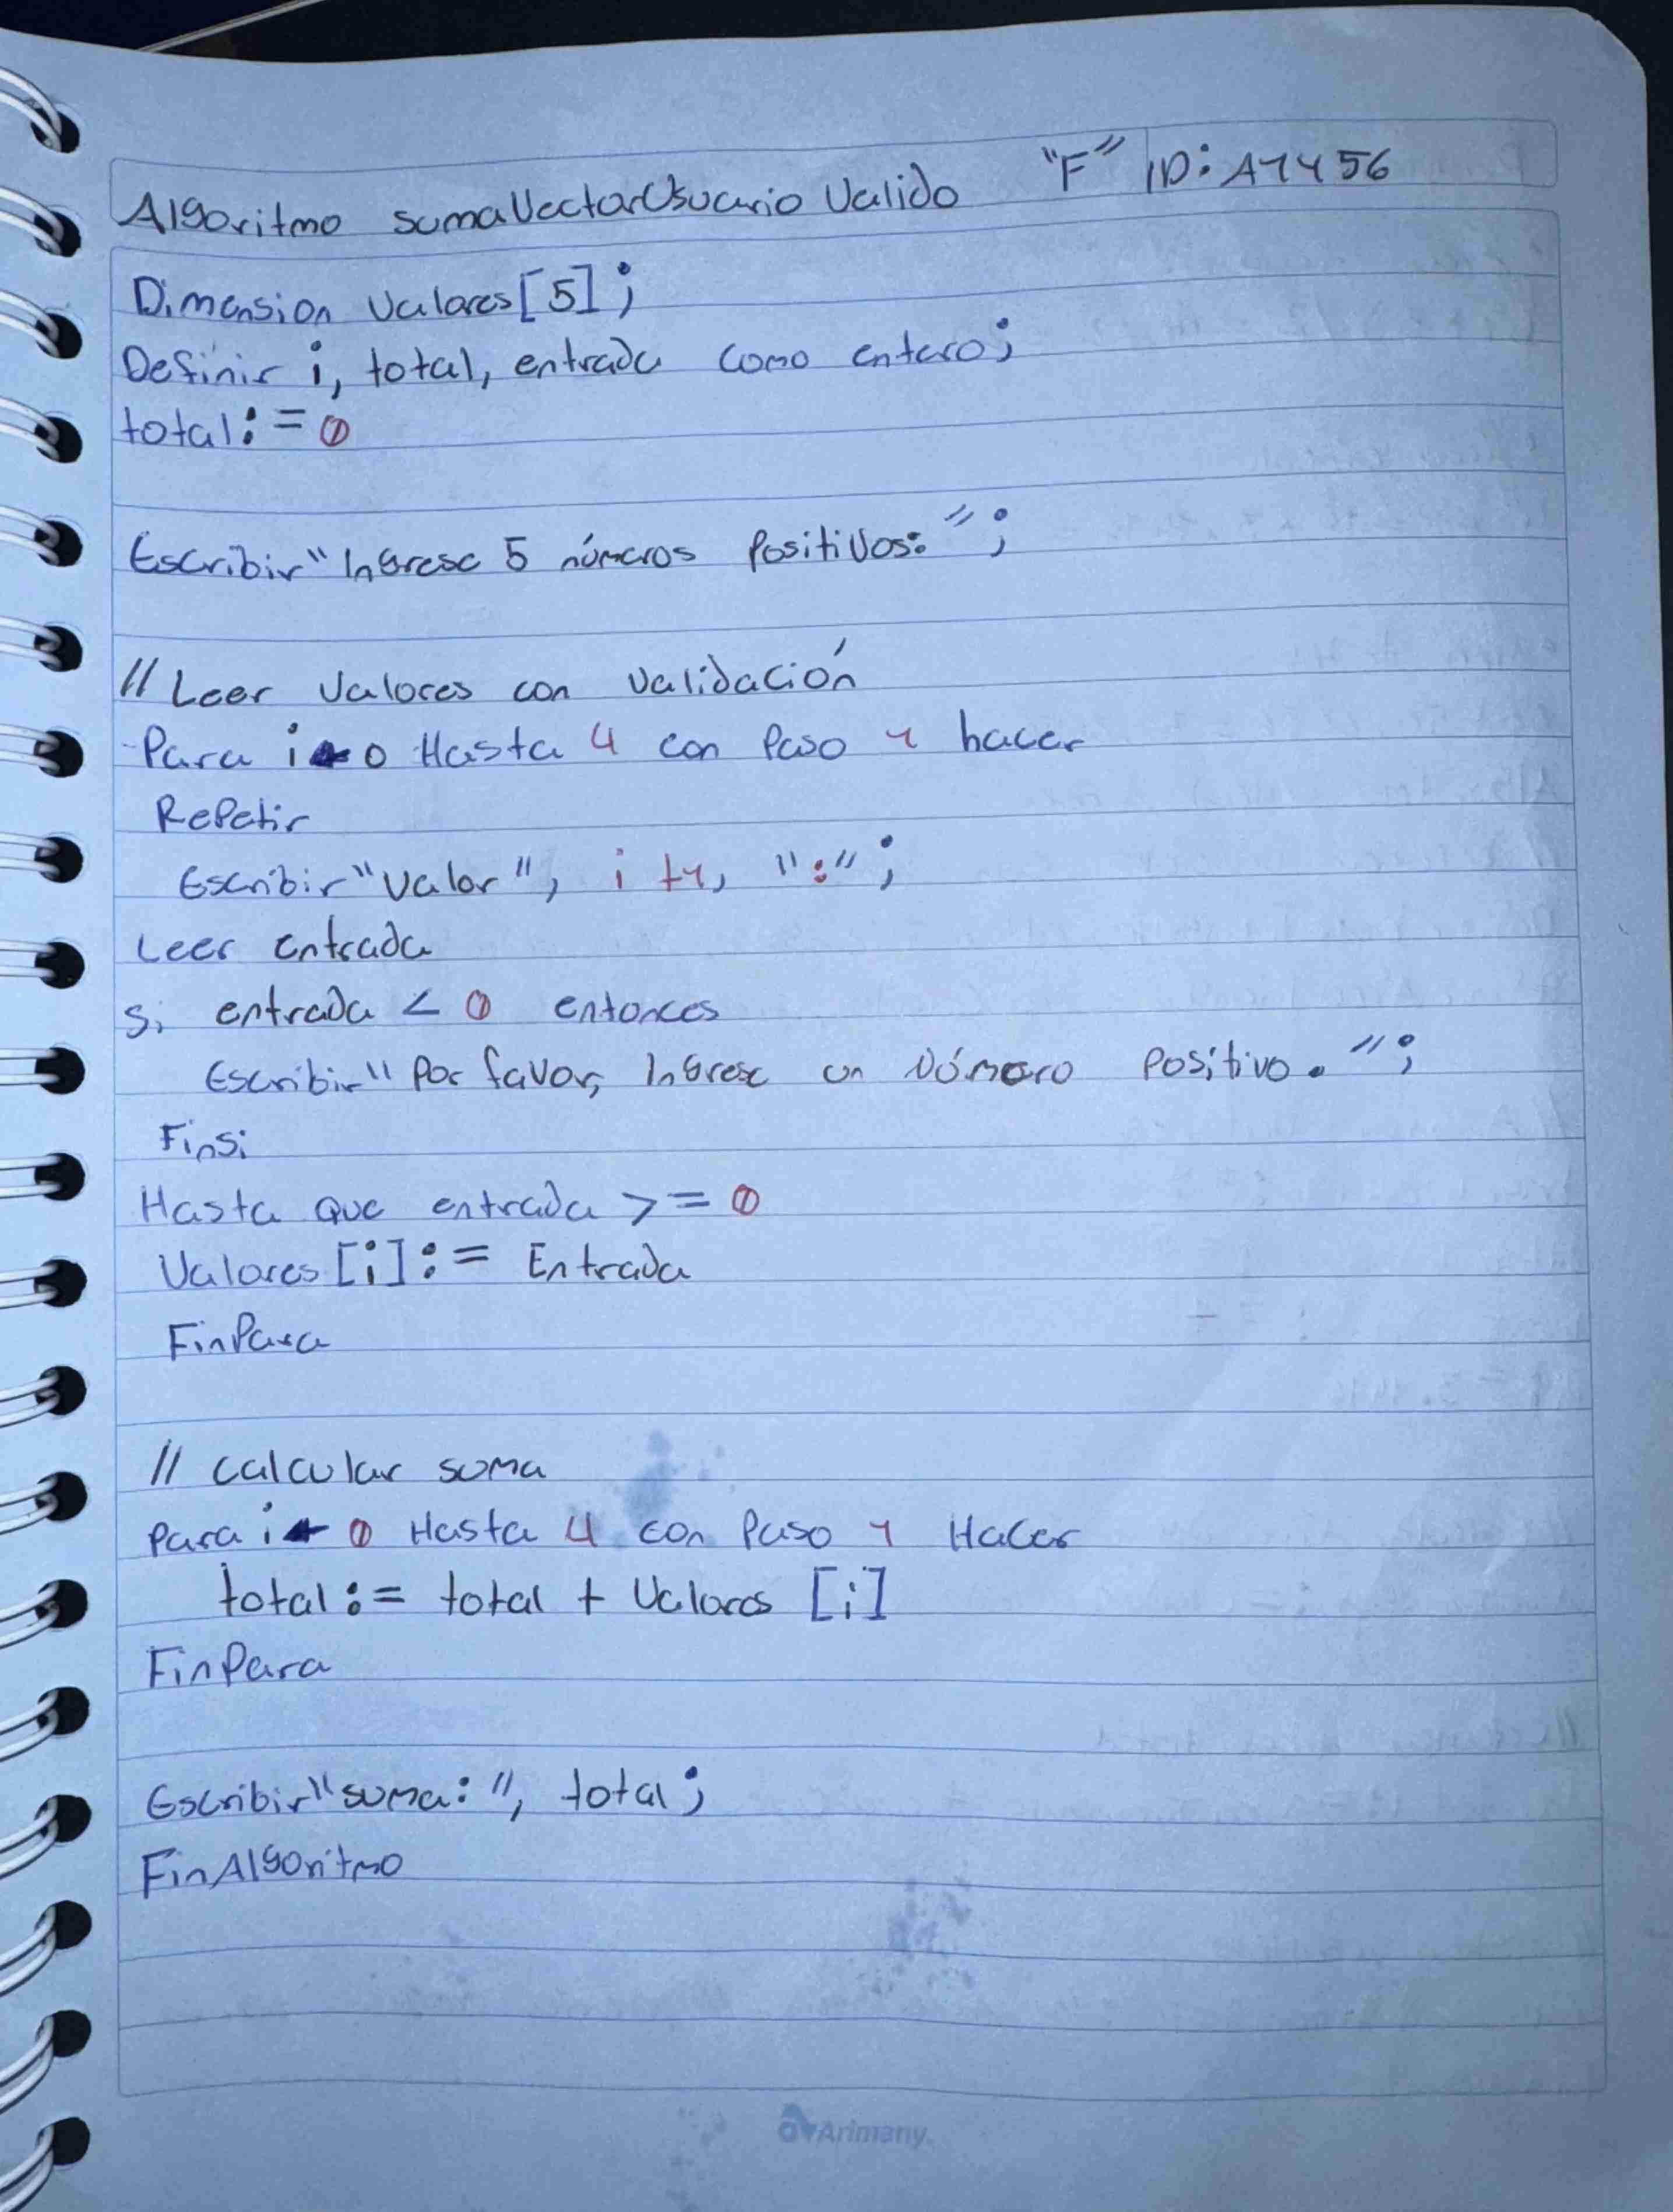 Algoritmo sumaVectorUsuario Valido "F" ID: A1456
Dimension Valores[5];
Definir i, total, entrada como entero;
total:=0
Escribir"Ingrese 5 números Positivos:";
//Leer Valores con Validación
Para i←0 Hasta 4 con Paso 1 hacer
Repetir
Escribir"Valor", i +1, ":";
Leer entrada
Si entrada < 0 entonces
Escribir"Por favor, Ingrese un Número Positivo.";
FinSi
Hasta que entrada >= 0
Valores[i]:= Entrada
FinPara
// calcular suma
Para i← 0 Hasta 4 con Paso 1 Hacer
total:= total + Valores [i]
FinPara
Escribir"suma:", total;
FinAlgoritmo
Arimany.